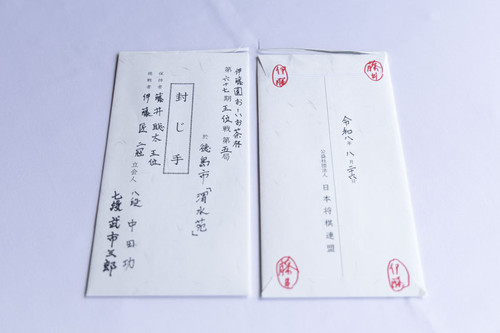 伊藤園お〜いお茶杯
第六十七期王位戦第五局
於 徳島市「渭水苑」
封じ手
保持者 藤井聡太王位
挑戦者 伊藤匠二冠
立会人 八段 中田功
七段 武市三郎
藤井
伊藤
令和八年八月
公益社団法人 日本将棋連盟
伊藤
藤井